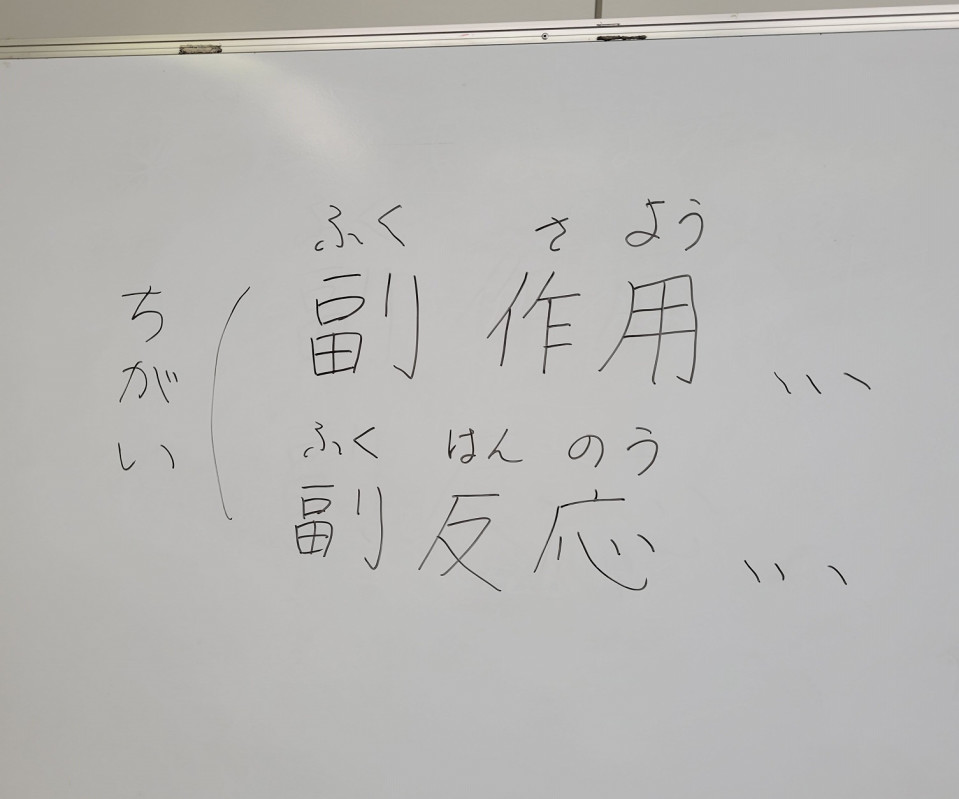 ちがい
ふく さ よう
副作用 、、、
ふく はん のう
副反応 、、、